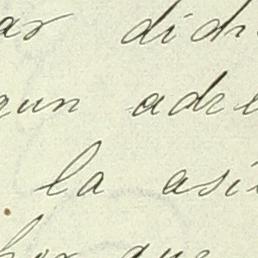 ar dich
gun adre
la asi
hor que